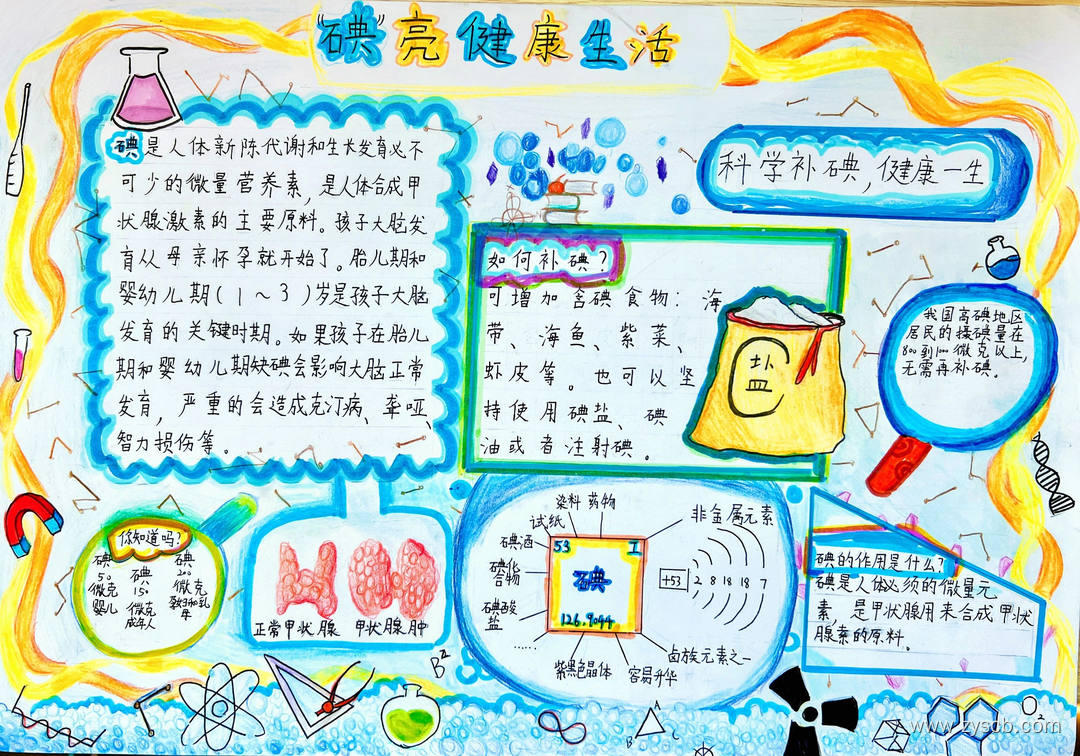 "碘"亮健康生活
碘是人体新陈代谢和生长发育必不
可少的微量营养素，是人体合成甲
状腺激素的主要原料。孩子大脑发
育从母亲怀孕就开始了。胎儿期和
婴幼儿期(1～3)岁是孩子大脑
发育的关键时期。如果孩子在胎儿
期和婴幼儿期缺碘会影响大脑正常
发育，严重的会造成克汀病、聋哑、
智力损伤等。
科学补碘，健康一生
如何补碘？
可增加含碘食物：海
带、海鱼、紫菜、
虾皮等。也可以坚
持使用碘盐、碘
油或者注射碘。
盐
我国高碘地区
居民的摄碘量在
800到1000微克以上，
无需再补碘。
你知道吗？
碘
50
微克
婴儿
碘
150
微克
成年人
碘
200
微克
正常甲状腺
甲状腺肿
染料
药物
试纸
碘酒
碘化
合物
碘酸
盐
……
紫黑色晶体
容易升华
卤族元素之一
非金属元素
53 I
碘
126.9044
+53
2 8 18 18 7
碘的作用是什么？
碘是人体必须的微量元
素，是甲状腺用来合成甲状
腺素的原料。
B²
A
B
C
O₂
www.zyscb.com